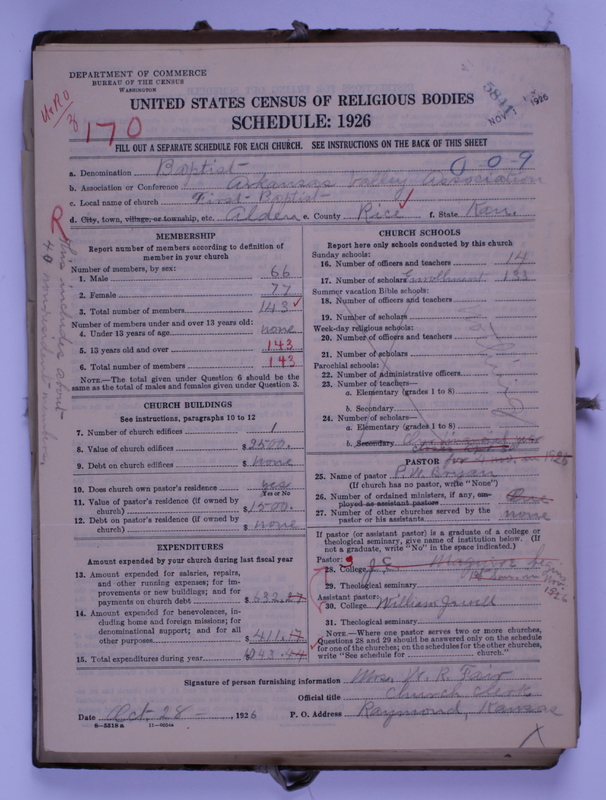 DEPARTMENT OF COMMERCE
BUREAU OF THE CENSUS
WASHINGTON
UNITED STATES CENSUS OF RELIGIOUS BODIES
SCHEDULE: 1926
170
FILL OUT A SEPARATE SCHEDULE FOR EACH CHURCH. SEE INSTRUCTIONS ON THE BACK OF THIS SHEET
a. Denomination Baptist 0-0-9
b. Association or Conference Arkansas Valley Association
c. Local name of church First Baptist
d. City, town, village, or township, etc. Alden e. County Rice f. State Kan.
MEMBERSHIP
Report number of members according to definition of
member in your church
Number of members, by sex:
1. Male 66
2. Female 77
3. Total number of members 143
Number of members under and over 13 years old:
4. Under 13 years of age none
5. 13 years old and over 143
6. Total number of members 143
NOTE.—The total given under Question 6 should be the
same as the total of males and females given under Question 3.
This includes about
40 nonresident members
CHURCH BUILDINGS
See instructions, paragraphs 10 to 12
7. Number of church edifices 1
8. Value of church edifices $ 2500.
9. Debt on church edifices $ none
10. Does church own pastor's residence yes
Yes or No
11. Value of pastor's residence (if owned by
church) $ 1500.
12. Debt on pastor's residence (if owned by
church) $ none
EXPENDITURES
Amount expended by your church during last fiscal year
13. Amount expended for salaries, repairs,
and other running expenses; for im-
provements or new buildings; and for
payments on church debt $ 632.27
14. Amount expended for benevolences, in-
cluding home and foreign missions; for
denominational support; and for all
other purposes $ 411.17
15. Total expenditures during year $ 1043.44
CHURCH SCHOOLS
Report here only schools conducted by this church
Sunday schools:
16. Number of officers and teachers 14
17. Number of scholars Enrollment 133
Summer vacation Bible schools:
18. Number of officers and teachers
19. Number of scholars
Week-day religious schools:
20. Number of officers and teachers
21. Number of scholars
Parochial schools:
22. Number of administrative officers
23. Number of teachers—
a. Elementary (grades 1 to 8)
b. Secondary
24. Number of scholars—
a. Elementary (grades 1 to 8)
b. Secondary
Nothing
PASTOR
25. Name of pastor P. W. Bryan
(If church has no pastor, write "None")
26. Number of ordained ministers, if any, em-
ployed as assistant pastors One
27. Number of other churches served by the
pastor or his assistants none
If pastor (or assistant pastor) is a graduate of a college or
theological seminary, give name of institution below. (If
not a graduate, write "No" in the space indicated.)
Pastor:
28. College
29. Theological seminary
Assistant pastor:
30. College William Jewell
31. Theological seminary
NOTE.—Where one pastor serves two or more churches,
Questions 28 and 29 should be answered only on the schedule
for one of the churches; on the schedules for the other churches,
write "See schedule for church."
Signature of person furnishing information Mrs. W. R. Fair
Official title Church Clerk
Date Oct. 28, 1926 P. O. Address Raymond, Kansas
8-5518a